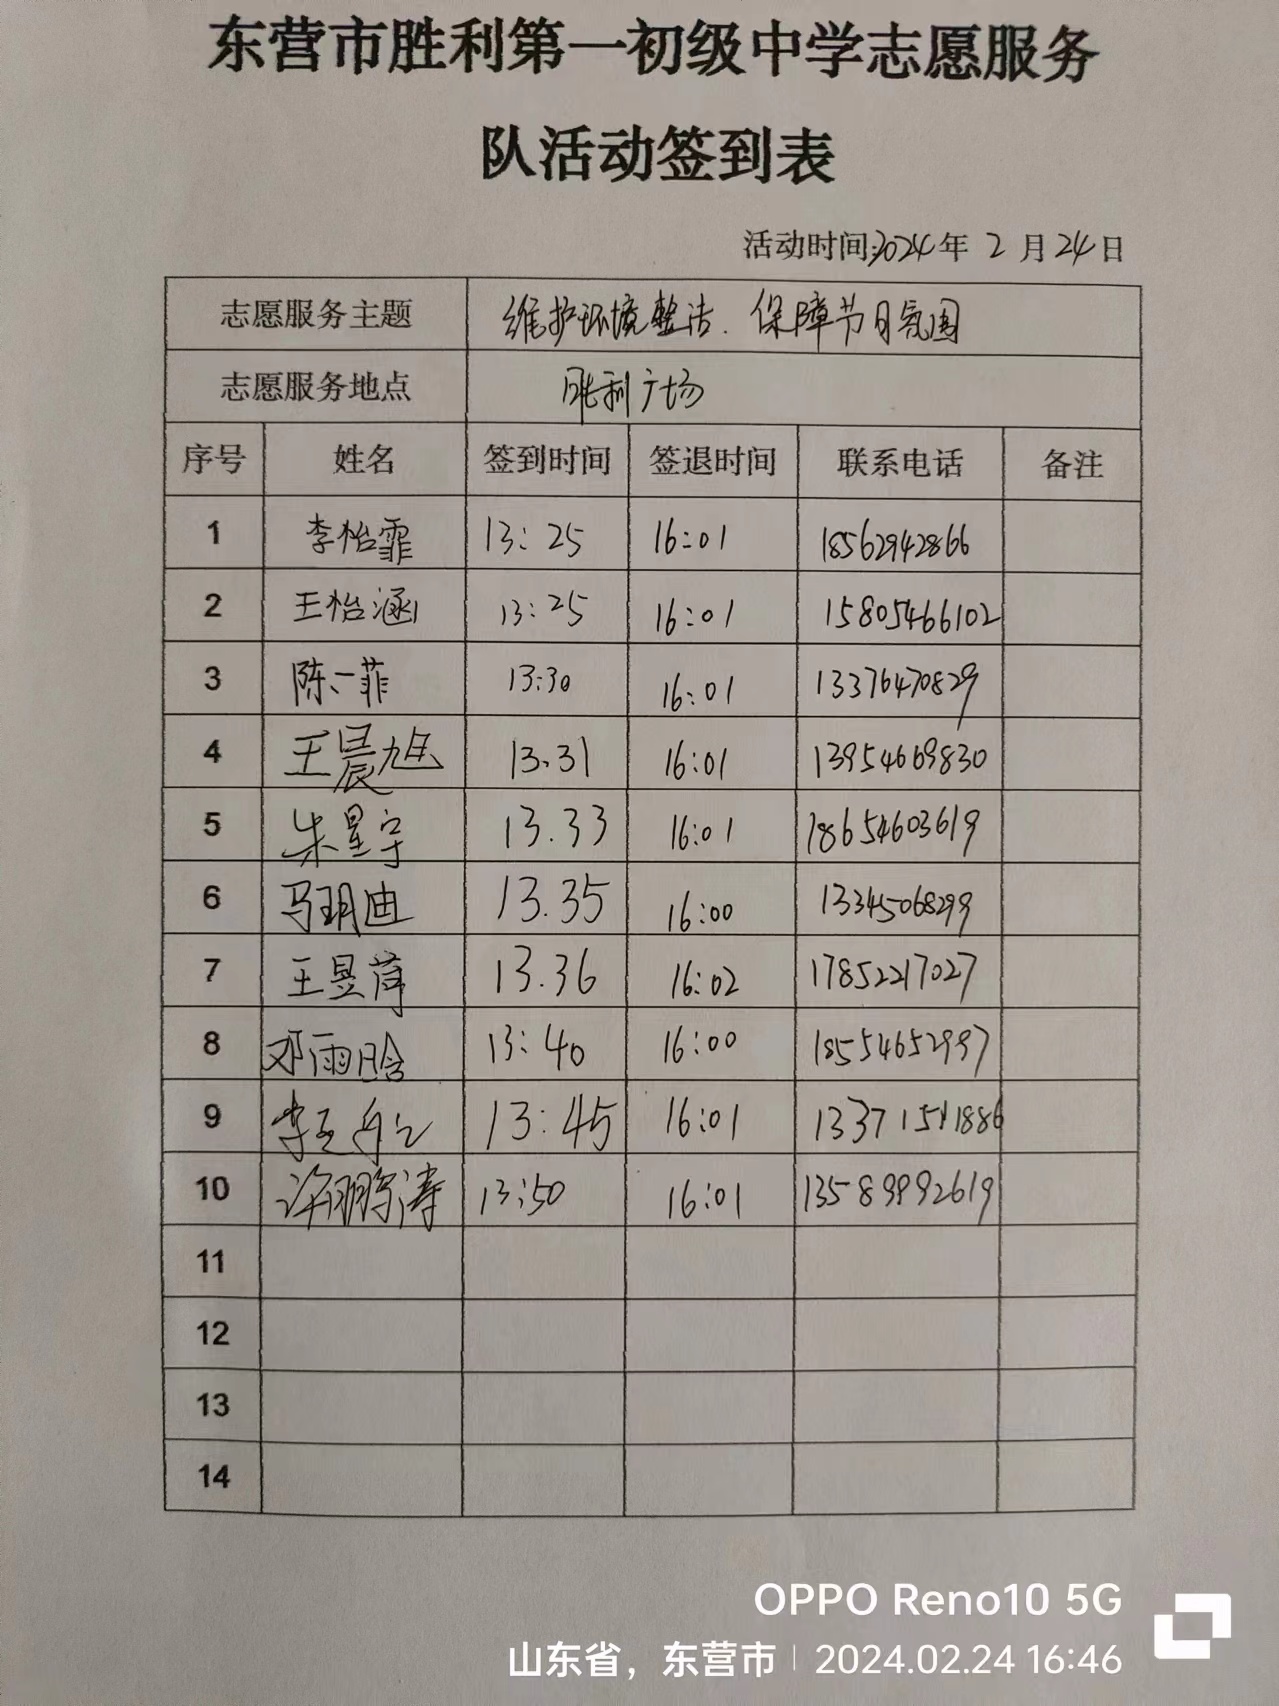 东营市胜利第一初级中学志愿服务
队活动签到表
活动时间:2024年 2 月 24 日
志愿服务主题 维护环境整洁、保障节日氛围
志愿服务地点 胜利广场
序号 姓名 签到时间 签退时间 联系电话 备注
1 李怡霏 13:25 16:01 18562942866
2 王怡涵 13:25 16:01 15805466102
3 陈一菲 13:30 16:01 13376470829
4 王晨旭 13.31 16:01 13954669830
5 朱星宇 13.33 16:01 18654603619
6 马玥迪 13.35 16:00 13345068299
7 王昱 13.36 16:02 17852217027
8 邓雨晗 13:40 16:00 18554652997
9 李 13:45 16:01
10 许鹏涛 13:50 16:01 13589992619
11
12
13
14
OPPO Reno10 5G
山东省，东营市 | 2024.02.24 16:46